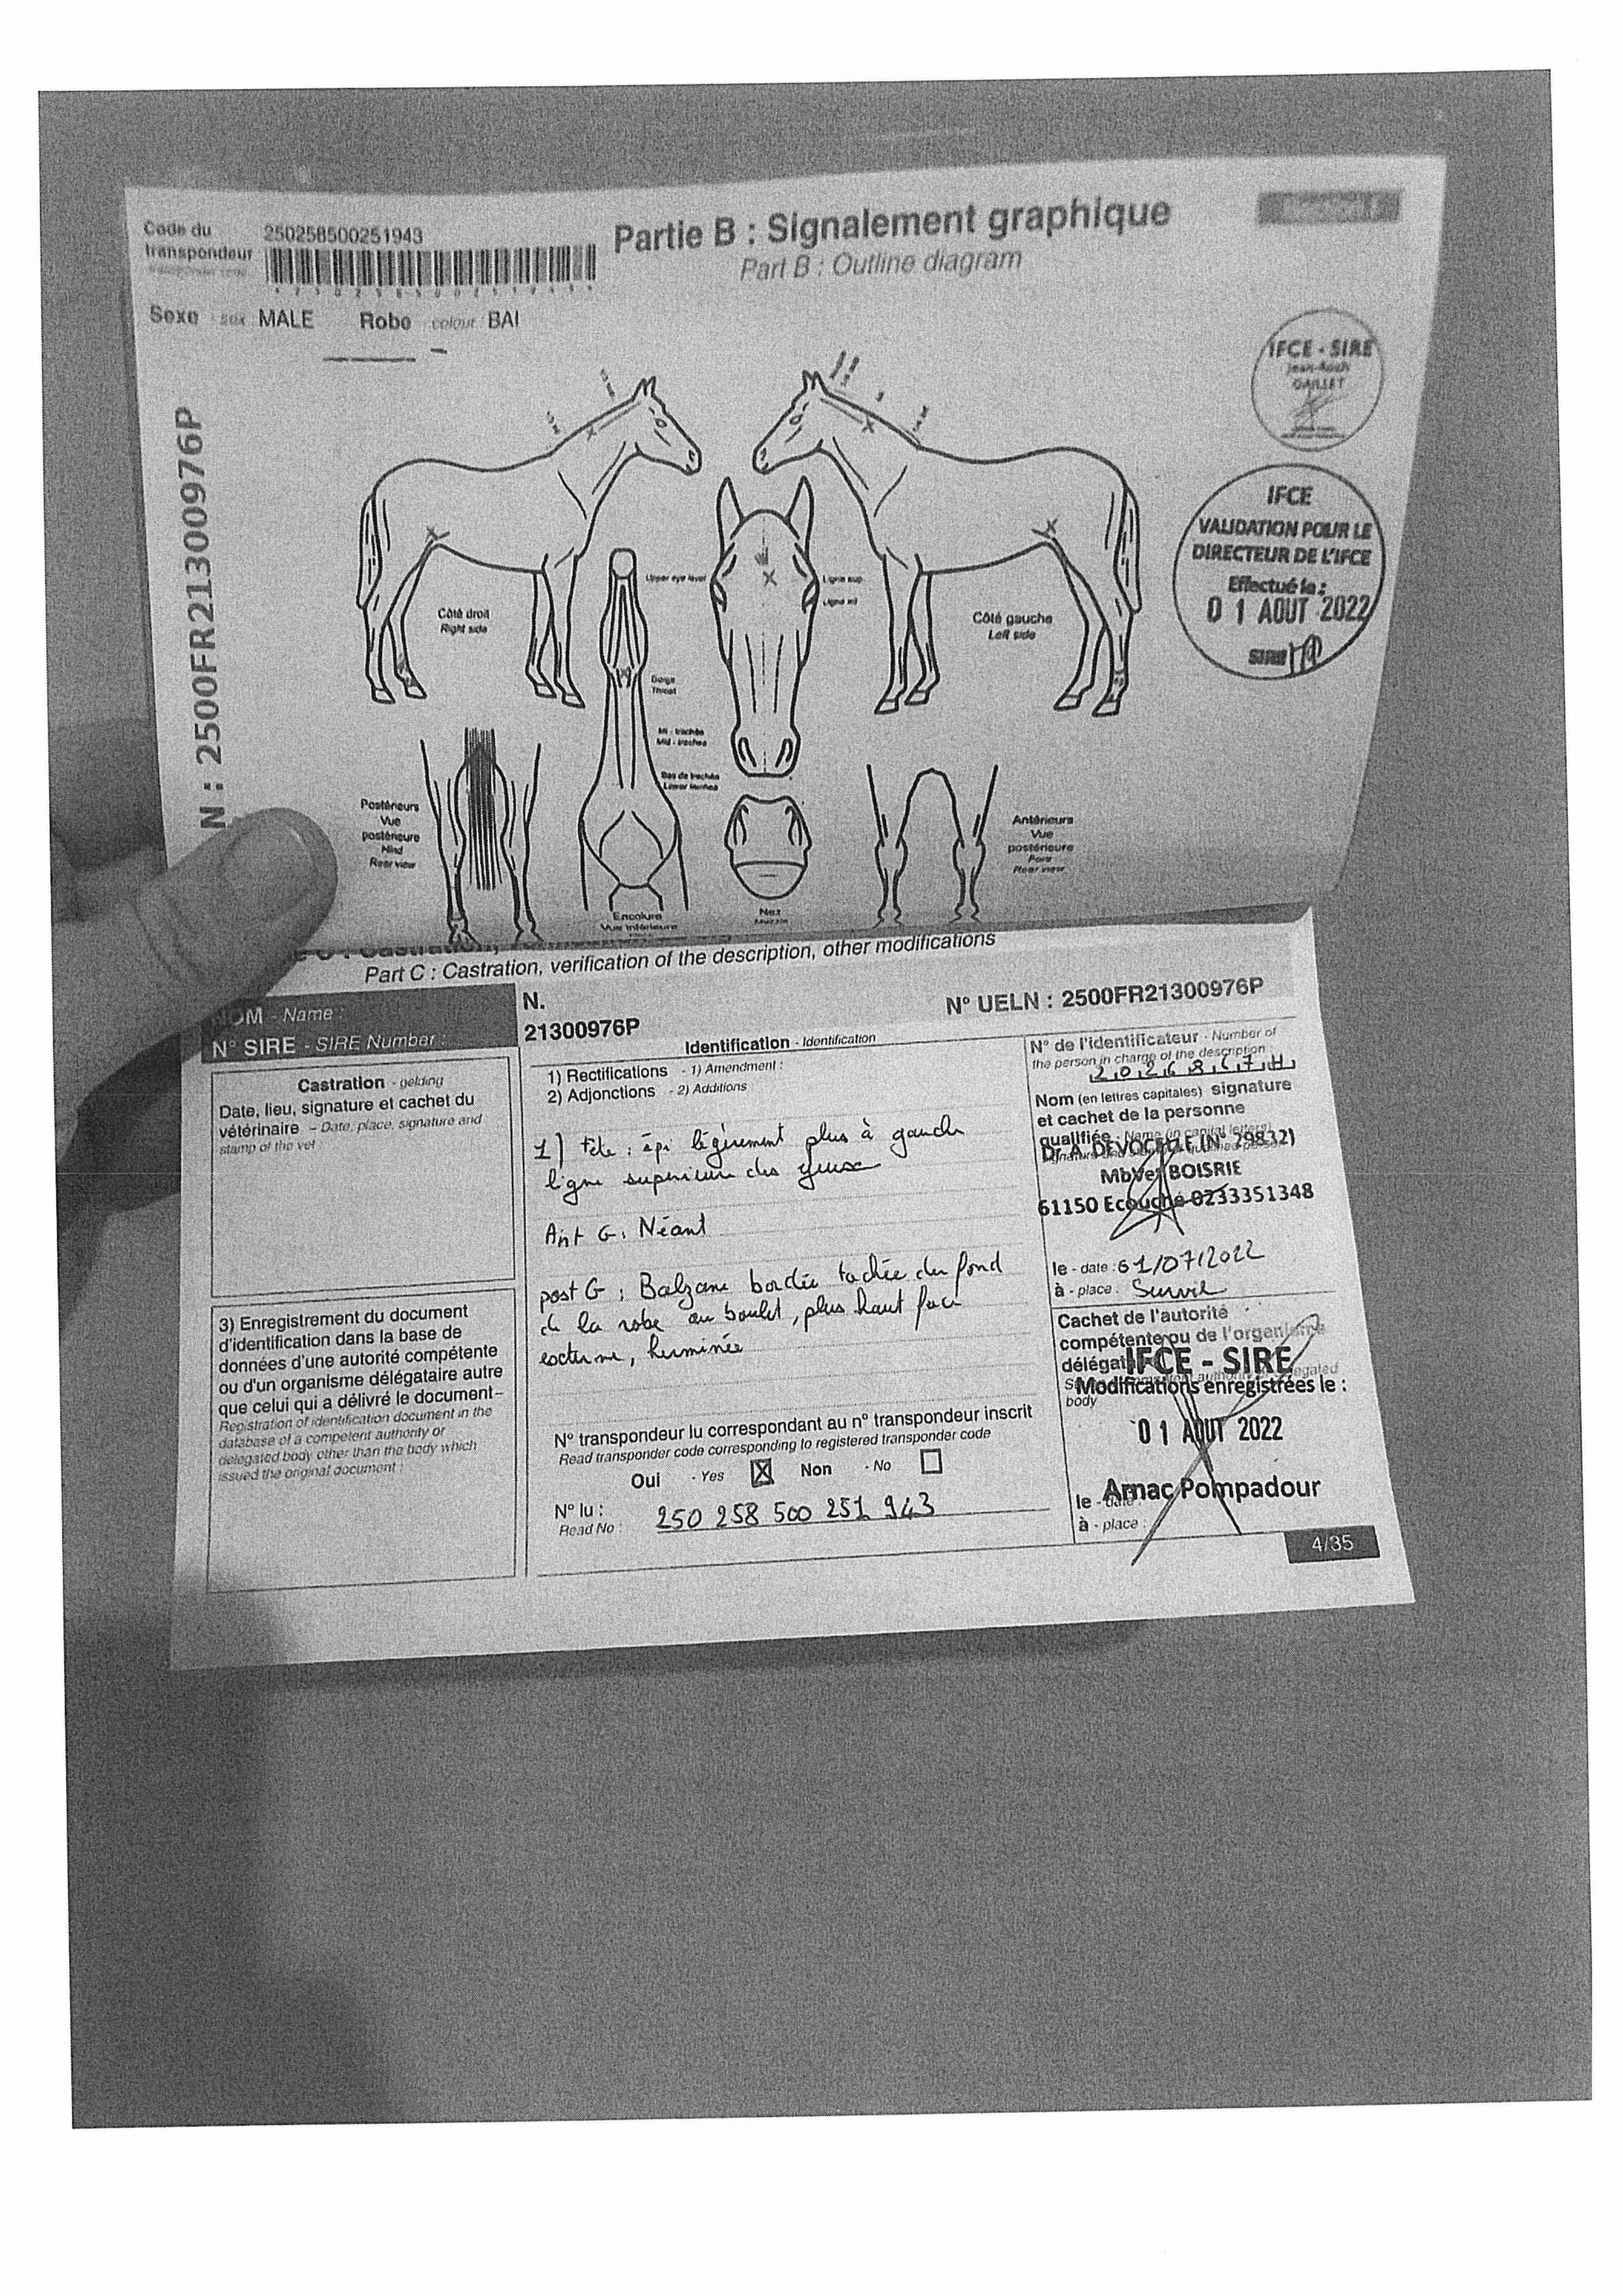 Code du
transpondeur
250258500251943
Partie B : Signalement graphique
Part B : Outline diagram
Sexe sex MALE Robe colour BAI
N : 2500FR21300976P
IFCE - SIRE
GAILLET
IFCE
VALIDATION POUR LE
DIRECTEUR DE L'IFCE
Effectué le :
0 1 AOUT 2022
SIRE
Côté droit
Right side
Upper eye level
Ligne sup
Côté gauche
Left side
Gorge
Throat
Mi - trachée
Mid - trachea
Bas de trachée
Postérieurs
Vue
postérieure
Hind
Rear view
Encolure
Vue inférieure
Nez
Muzzle
Antérieurs
Vue
postérieure
Fore
Rear view
Part C : Castration, verification of the description, other modifications
NOM - Name :
N.
N° UELN : 2500FR21300976P
N° SIRE - SIRE Number :
21300976P
Castration - gelding
Date, lieu, signature et cachet du
vétérinaire - Date, place, signature and
stamp of the vet
Identification - Identification
1) Rectifications - 1) Amendment :
2) Adjonctions - 2) Additions
1) tête : épi légèrement plus à gauche
ligne supérieure des yeux
Ant G : Néant
post G : Balzane bordée tachée du fond
de la robe au boulet, plus haut face
externe, herminée
N° de l'identificateur - Number of
the person in charge of the description :
2026867H
Nom (en lettres capitales) signature
et cachet de la personne
qualifiée
Dr A. DEVOCELLE (N° 29832)
MbVet BOISRIE
61150 Ecouché 0233351348
le - date : 01/07/2022
à - place :
3) Enregistrement du document
d'identification dans la base de
données d'une autorité compétente
ou d'un organisme délégataire autre
que celui qui a délivré le document -
Registration of identification document in the
database of a competent authority or
delegated body other than the body which
issued the original document :
Cachet de l'autorité
compétente ou de l'organisme
IFCE - SIRE
Modifications enregistrées le :
body
0 1 AOUT 2022
Arnac Pompadour
le - date
à - place :
N° transpondeur lu correspondant au n° transpondeur inscrit
Read transponder code corresponding to registered transponder code
Oui - Yes Non - No
N° lu :
Read No :
250 258 500 251 943
4/35